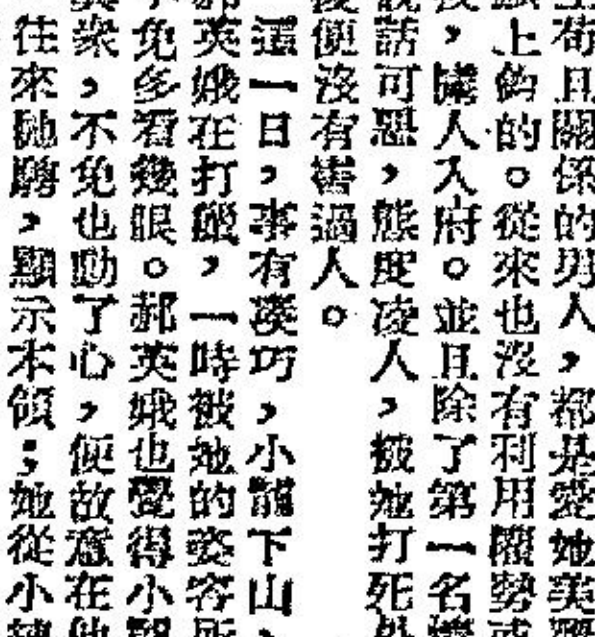 苟且關係的男人，都是愛她美
上鈎的。從來也沒有利用權勢
，擄人入府。並且除了第一名
話可惡，態度凌人，被她打死
便沒有害過人。
這一日，事有湊巧，小龍下山，
英娥在打獵，一時被她的姿容所
免多看幾眼。郝英娥也覺得小龍
眾，不免也動了心，便故意在他
往來馳騁，顯示本領；她從小